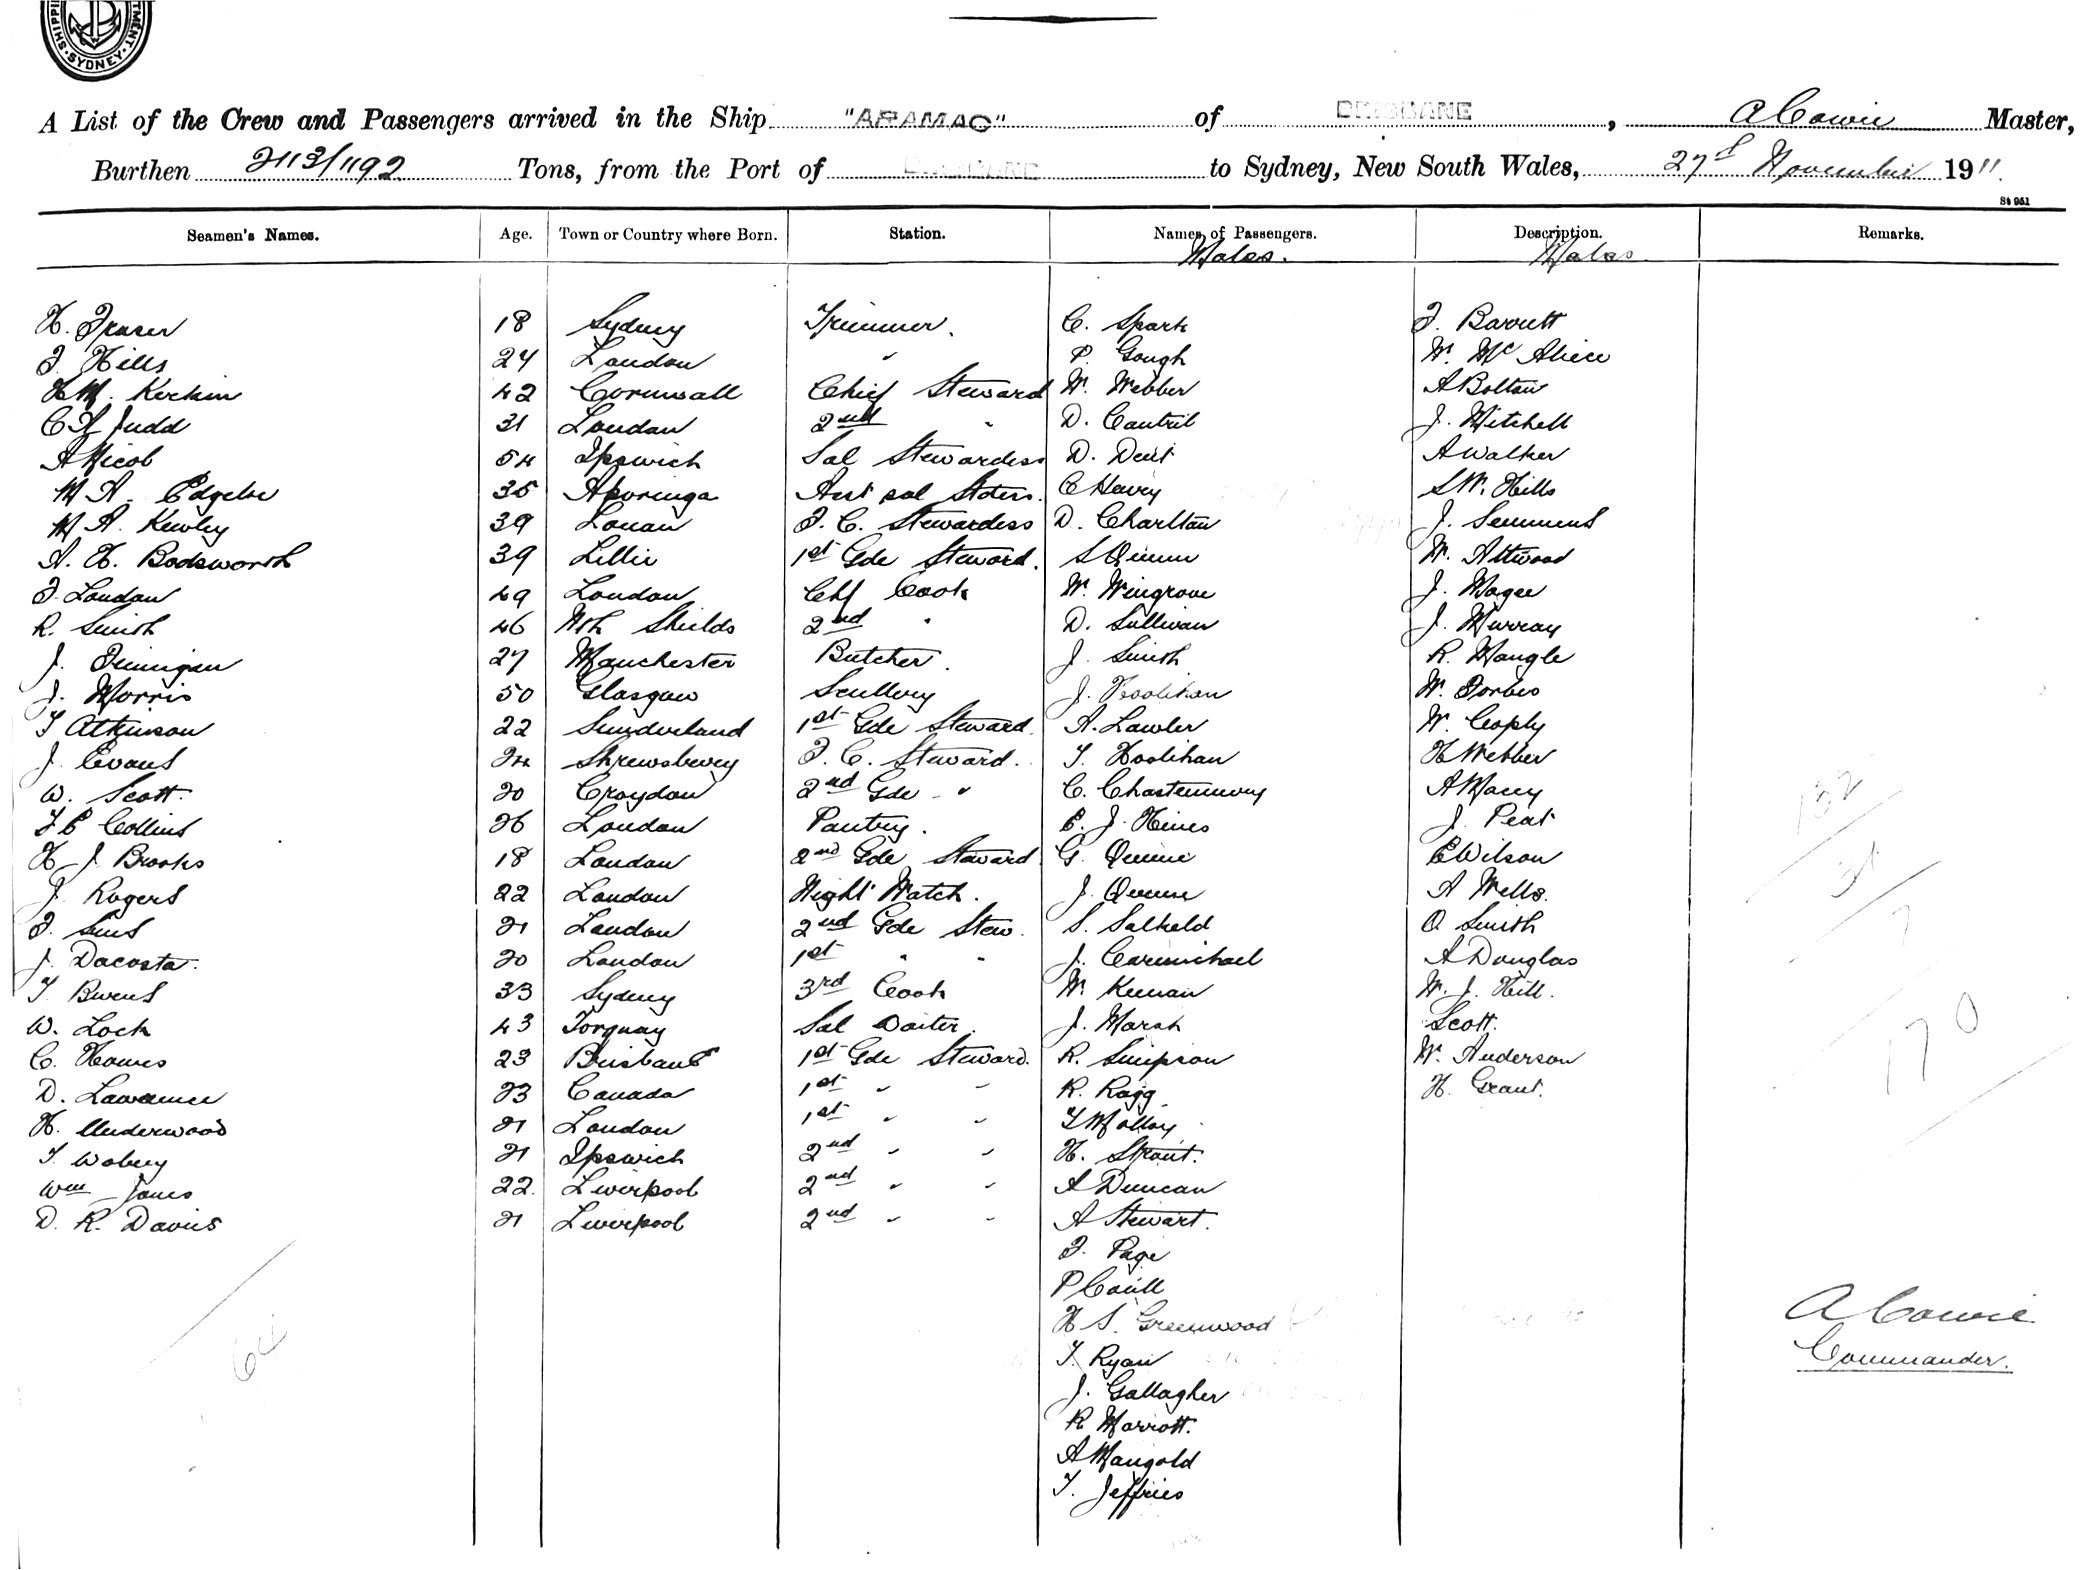 SHIPPING
SYDNEY
A List of the Crew and Passengers arrived in the Ship "ARAMAC" of BRISBANE, A Cowie Master,
Burthen 2113/1192 Tons, from the Port of BRISBANE to Sydney, New South Wales, 27th November 1911.
St 951
Seamen's Names. Age. Town or Country where Born. Station. Names of Passengers. Description. Remarks.
Males. Males.
H. Fraser 18 Sydney Trimmer. C. Spark F. Barrett
F. Hills 24 London " P. Gough W.
42 Cornwall Chief Steward W. Webber A Bolton
C H Judd 31 London 2nd " D. Cantril J. Mitchell
A Nicol 54 Ipswich Sal Stewardess D. Dent A Walker
M A. 35 Asst sal Stdess. C S W. Hills
M A. Kewley 39 F. C. Stewardess D. Charlton J. Semmens
A. H. Bodsworth 39 Lillie 1st Gde Steward. S Quinn W. Attwood
F. London 49 London Chf Cook W. Wingrove J. Magee
R. Smith 46 Nth Shields 2nd " D. Sullivan J. Murray
J. Finnigan 27 Manchester Butcher. J. Smith R. Mangle
J. Morris 50 Glasgow Scullery J. Hoolihan W. Forbes
T Atkinson 22 Sunderland 1st Gde Steward. A. Lawler W. Coply
J. Evans 24 Shrewsbury F. C. Steward. T. Hoolihan H Webber
W. Scott. 20 Croydon 2nd Gde " C. Chasteauneuy A Macey
F C Collins 26 London Pantry. E. J. Hines J. Peat
H J. Brooks 18 London 2nd Gde Steward G. Quinn E Wilson
J. Rogers 22 London Night Watch. J. Quinn A Wells.
F. Sims 21 London 2nd Gde Stew. S. Salkeld O Smith
J. Dacosta. 20 London 1st " " J. Carmichael A Douglas
T Bwens 33 Sydney 3rd Cook W. Keenan W. J. Hill.
W. Lock 43 Torquay Sal Waiter. J. Marsh Scott.
C. Howes 23 Brisbane 1st Gde Steward. R. Simpson W. Anderson
D. Lawrence 23 Canada 1st " " R. Ragg H. Grant.
H. Underwood 21 London 1st " " T Molloy
T 21 Ipswich 2nd " " H. Strout.
Wm Jones 22. Liverpool 2nd " " A Duncan
D. R. Davies 21 Liverpool 2nd " " A Stewart.
F. Page
P Covill
H S. Greenwood
T. Ryan
J. Gallagher
R Marriott.
A Mangold
T. Jeffries
132
31
7
170
64
A Cowie
Commander.